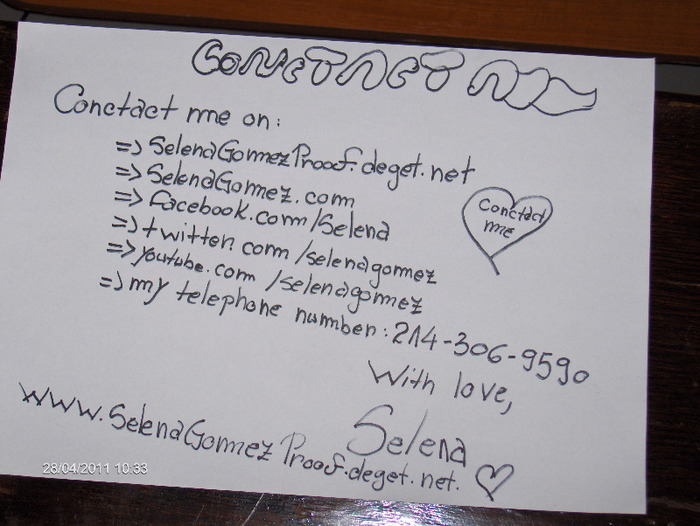 Conctact me on:
=> SelenaGomezProof.deget.net
=> SelenaGomez.com
=> facebook.com/Selena
=> twitter.com/selenagomez
=> youtube.com/selenagomez
=> my telephone number: 214-306-9590
Conctact
me
With love,
Selena
www.SelenaGomezProof.deget.net.
28/04/2011 10:33